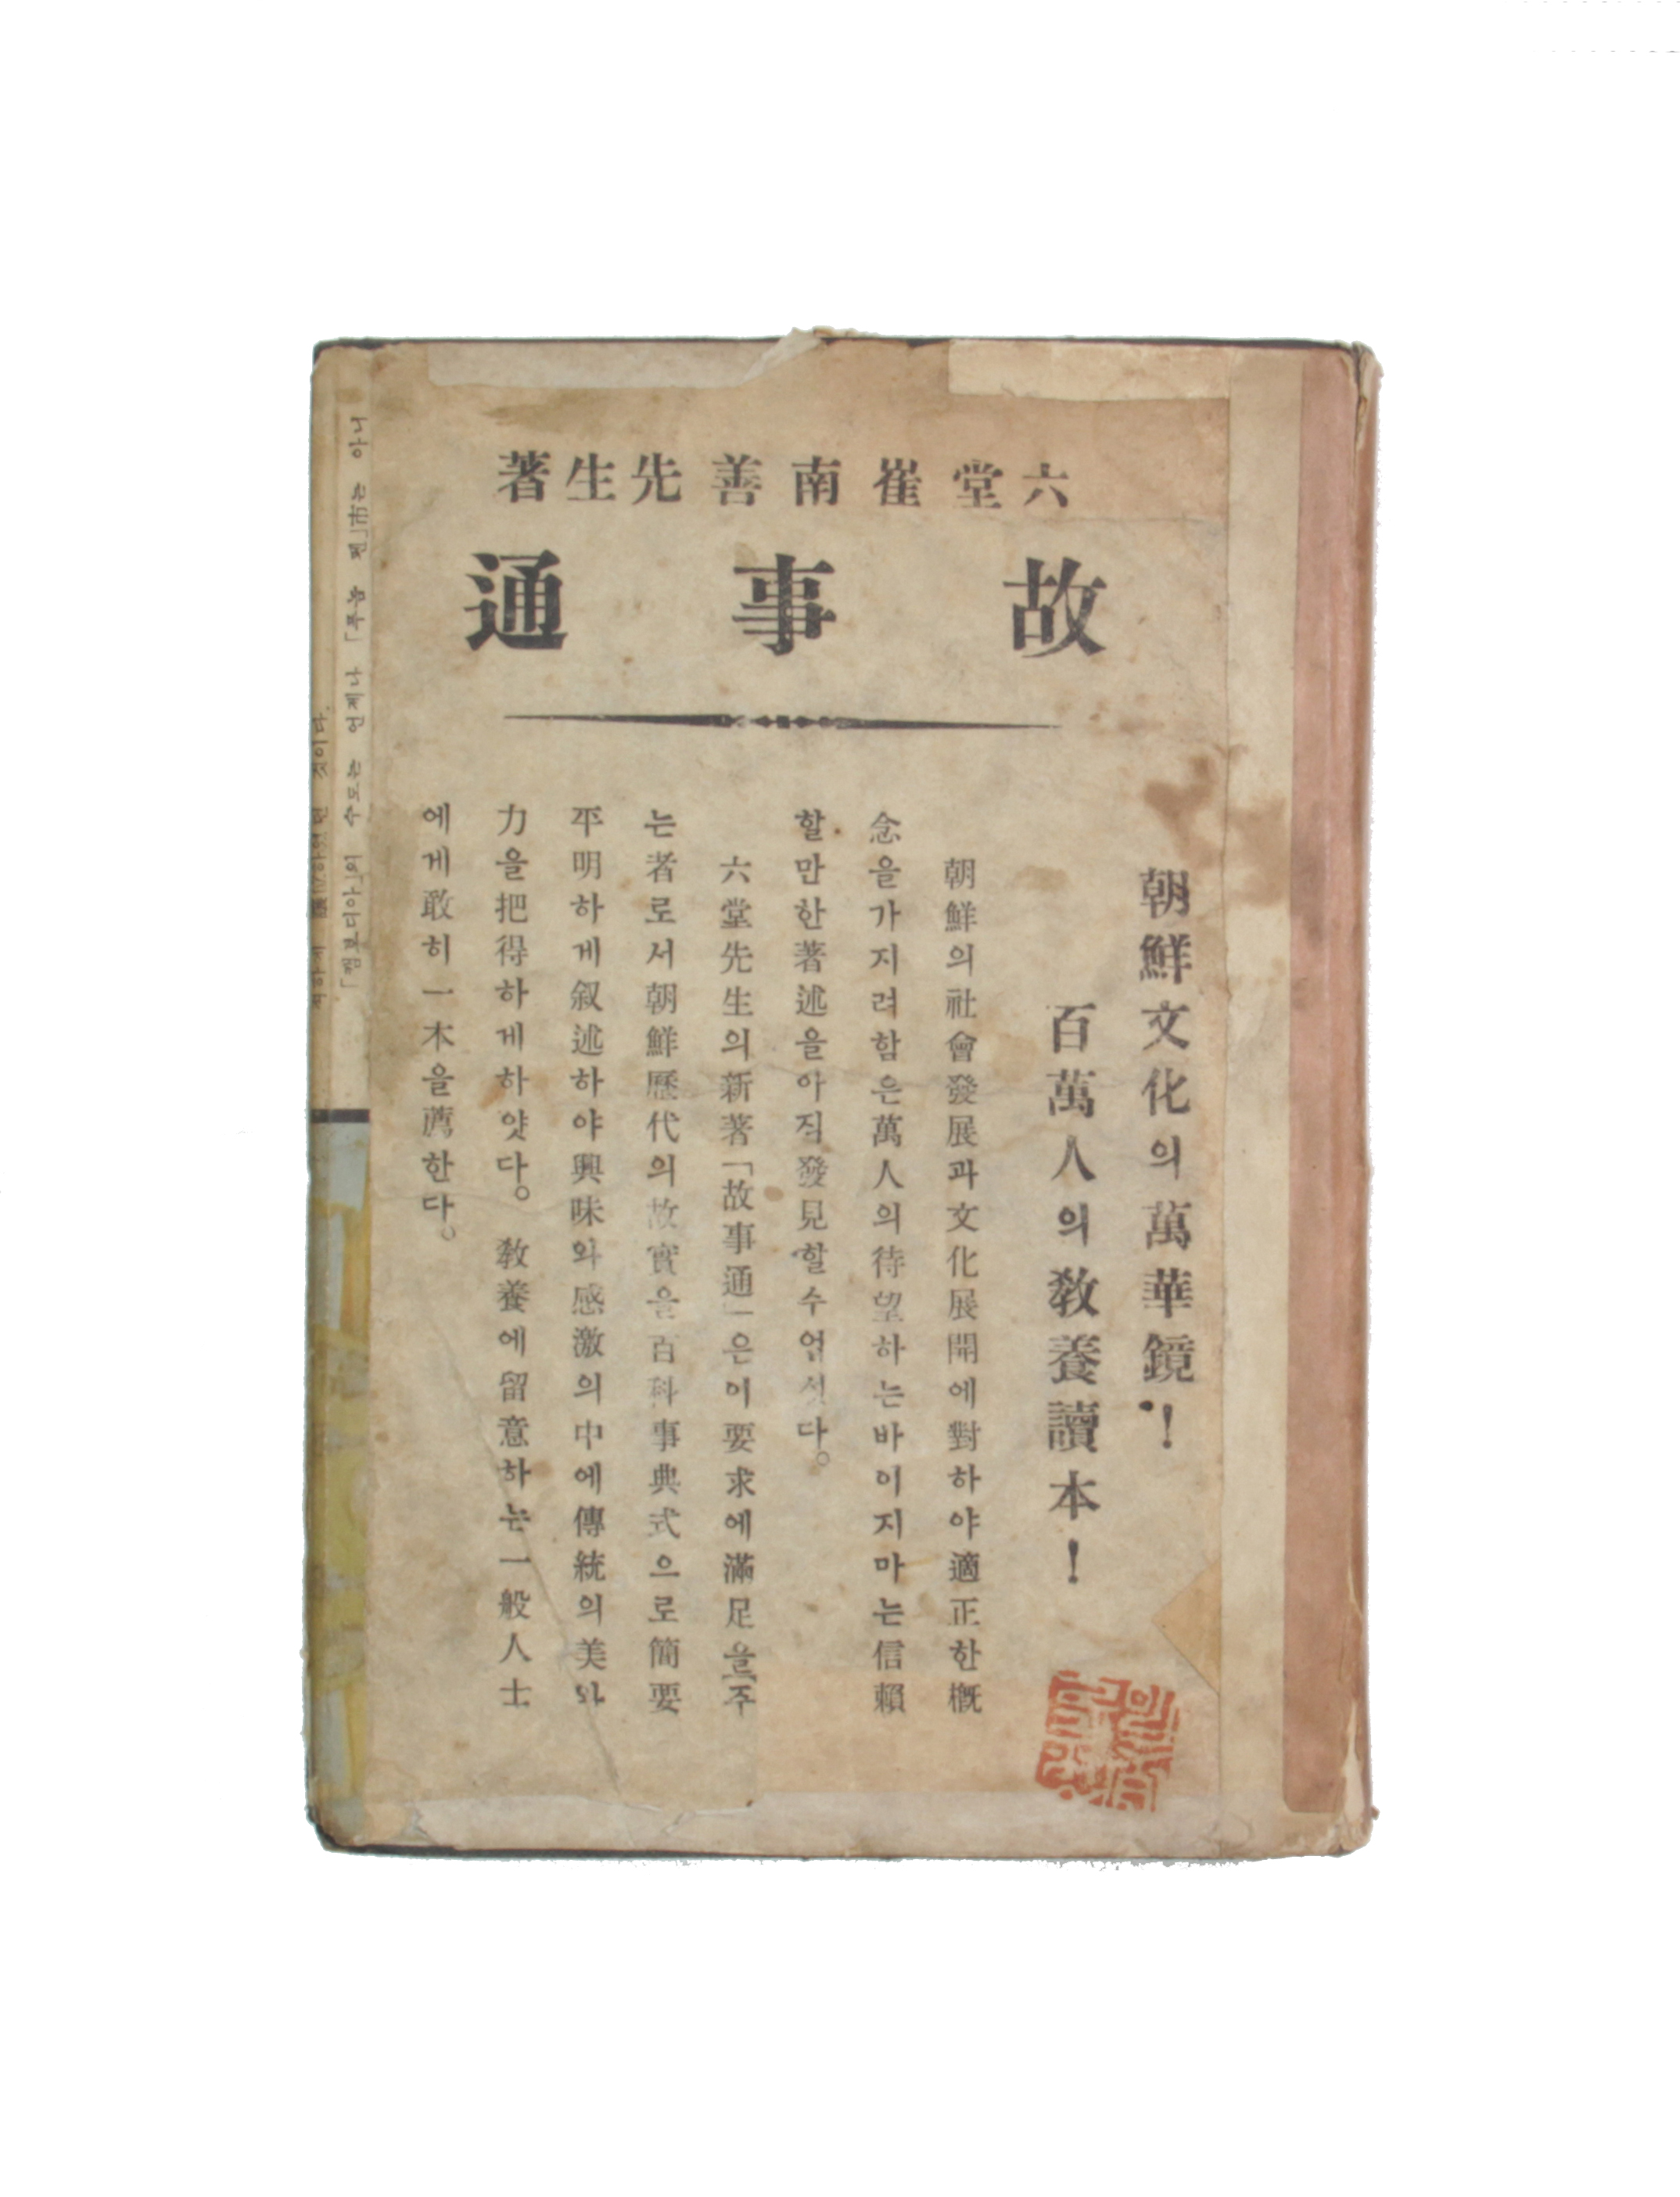 六堂崔南善先生著
故事通
朝鮮文化의萬華鏡!
百萬人의敎養讀本!
朝鮮의社會發展과文化展開에對하야適正한槪
念을가지려함은萬人의待望하는바이지마는信賴
할만한著述을아직發見할수업섯다。
六堂先生의新著「故事通」은이要求에滿足을주
는者로서朝鮮歷代의故實을百科事典式으로簡要
平明하게叙述하야興味와感激의中에傳統의美와
力을把得하게하얏다。敎養에留意하는一般人士
에게敢히一本을薦한다。